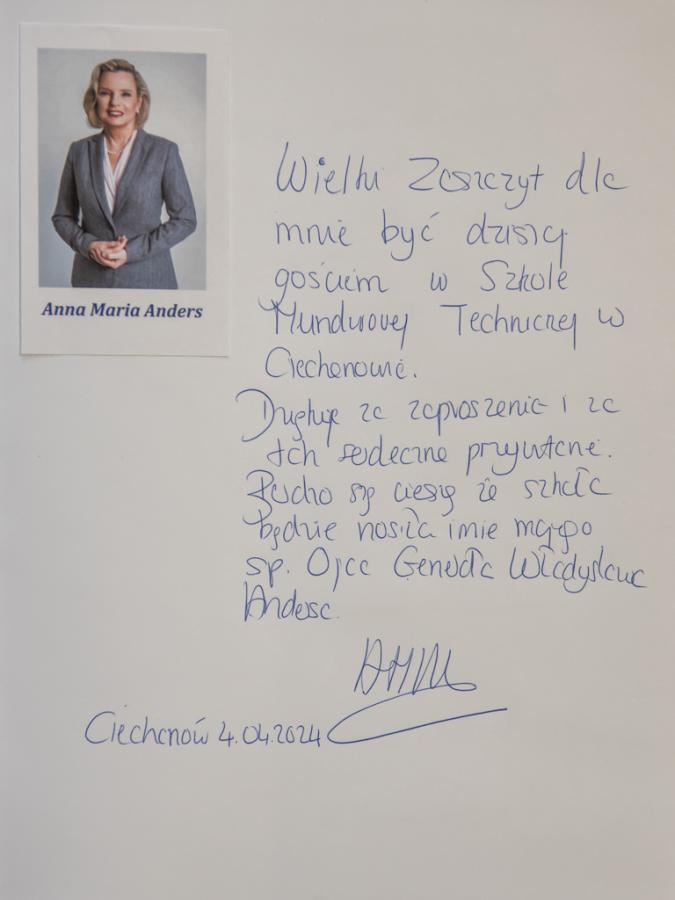 Anna Maria Anders
Wielki Zaszczyt dla
mnie być dzisiaj
gościem w Szkole
Mundurovej Technicznej w
Ciechanowie.
Dziękuje za zaproszenie i za
tak sedeczne przywitanie.
Bardzo się cieszę że szkoła
będzie nosiła imie mojego
sp. Ojca Generała Władysława
Andersa.
Ciechanów 4.04.2024